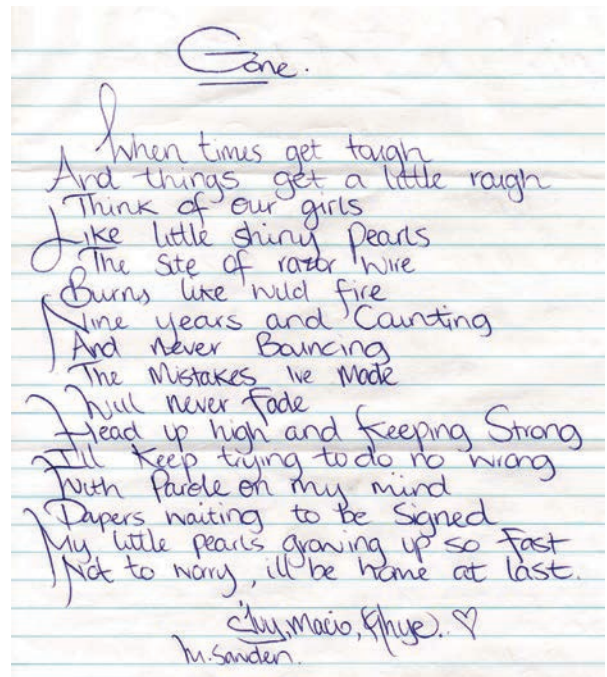 Gone.
When times get tough
And things get a little rough
Think of our girls
Like little shiny Pearls
The Site of razor wire
Burns like wild fire
Nine years and Counting
And never Bouncing
The Mistakes Ive Made
Will never Fade
Head up high and Keeping Strong
I'll Keep trying to do no wrong
With Parole on my mind
Papers waiting to be Signed
My little pearls growing up so Fast
Not to worry, ill be home at last.
♡